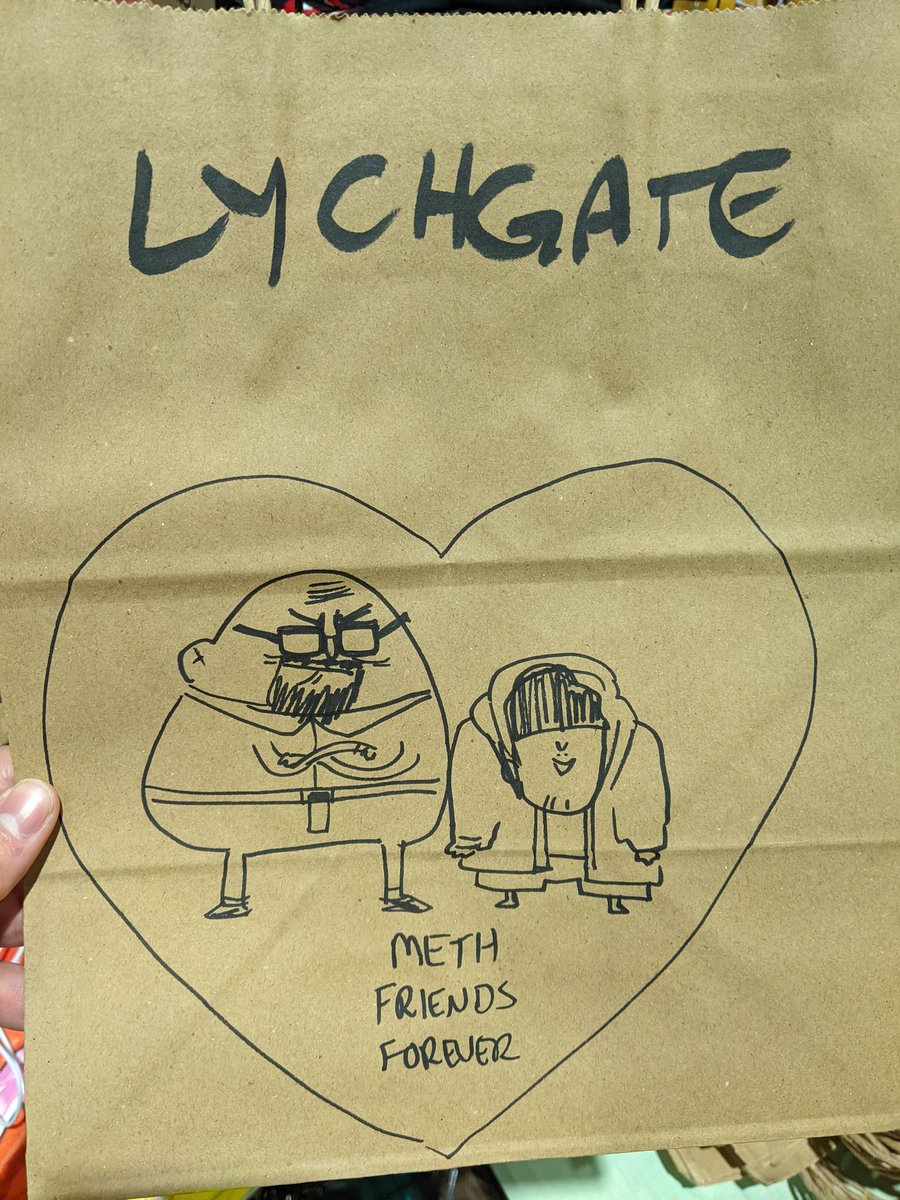 LYCHGATE
METH
FRIENDS
FOREVER